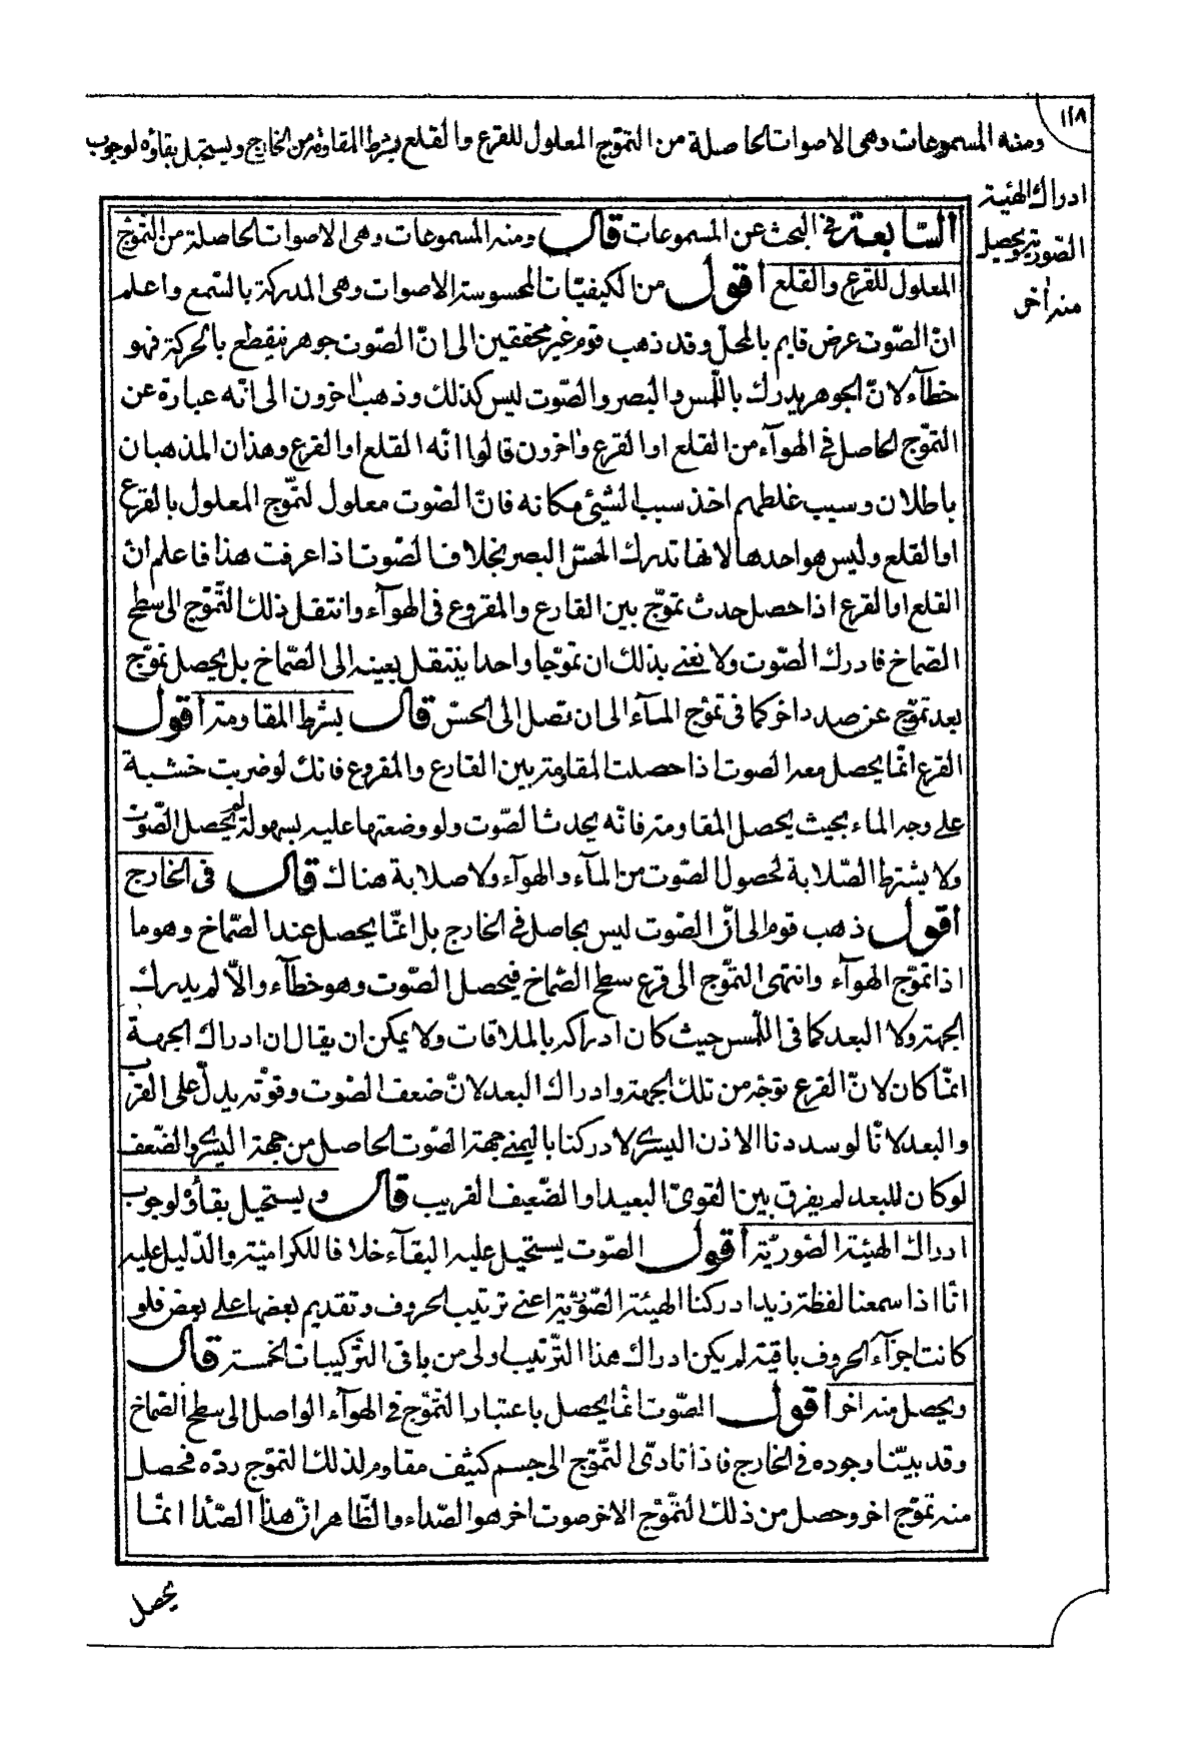 ١١٨
ومنه المسموعات وهى الاصوات الحاصلة من التموّج المعلول للقرع والقلع بشرط المقاومة من الخارج ويستحيل بقاؤه لوجوب
ادراك الهيئة
الصّوريّة ويحصل
منه أخر
السّابعة فى البحث عن المسموعات قال ومنه المسموعات وهى الاصوات الحاصلة من التموّج
المعلول للقرع والقلع أقول من الكيفيّات المحسوسة الاصوات وهى المدركة بالسّمع واعلم
انّ الصّوت عرض قايم بالمحلّ وقد ذهب قوم غير محققين الى انّ الصّوت جوهر ينقطع بالحركة فهو
خطآء لانّ الجوهر يدرك باللّمس والبصر والصّوت ليس كذلك وذهب اخرون الى انّه عبارة عن
التموّج الحاصل فى الهوآء من القلع او القرع واخرون قالوا انّه القلع او القرع وهذان المذهبان
باطلان وسبب غلطهم اخذ سبب الشيئ مكانه فانّ الصّوت معلول لتموّج المعلول بالقرع
او القلع وليس هو احدها لانها تدرك الحسّ البصر بخلاف الصّوت اذا عرفت هذا فاعلم انّ
القلع او القرع اذا حصل حدث تموّج بين القارع والمقروع فى الهوآء وانتقل ذلك التّموّج الى سطح
الصّماخ فادرك الصّوت ولا نعنى بذلك ان تموّجا واحدا ينتقل بعينه الى الصّماخ بل يحصل تموّج
بعد تموّج عن صدم اخر كما فى تموّج المآء الى ان تصل الى الحسّ قال بشرط المقاومة أقول
القرع انّما يحصل معه الصوت اذا حصلت المقاومة بين القارع والمقروع فانك لو ضربت خشبة
على وجه الماء بحيث يحصل المقاومة فانّه يحدث الصّوت ولو وضعتها عليه بسهولة لم يحصل الصّوت
ولا يشترط الصّلابة لحصول الصّوت من المآء والهوآء ولا صلابة هناك قال فى الخارج
أقول ذهب قوم الى انّ الصّوت ليس بحاصل فى الخارج بل انّما يحصل عند الصّماخ وهو ما
اذا تموّج الهوآء وانتهى التموّج الى قرع سطح الصّماخ فيحصل الصّوت وهو خطآء والّا لم يدرك
الجهة ولا البعد كما فى اللّمس حيث كان ادراكه بالملاقات ولا يمكن ان يقال ان ادراك الجهة
انّما كان لانّ القرع توجّه من تلك الجهة وادراك البعد لانّ ضعف الصّوت وقوّته يدلّ على القرب
والبعد لانّا لو سددنا الاذن اليسرى لادركنا باليمنى جهة الصّوت الحاصل من جهة اليسرى والضّعف
لو كان للبعد لم يفرق بين القوىّ البعيد او الضّعيف القريب قال ويستحيل بقآؤه لوجوب
ادراك الهيئة الصّوريّة أقول الصّوت يستحيل عليه البقآء خلافا للكراميّة والدّليل عليه
انّا اذا سمعنا لفظة زيد ادركنا الهيئة الصّوريّة اعنى ترتيب الحروف وتقديم بعضها على بعض فلو
كانت اجزآء الحروف باقية لم يكن ادراك هذا التّرتيب اولى من باقى التّركيبات الخمسة قال
ويحصل منه اخر أقول الصّوت انّما يحصل باعتبار التموّج فى الهوآء الواصل الى سطح الصّماخ
وقد بيّنّا وجوده فى الخارج فاذا تادّى التّموّج الى جسم كثيف مقاوم لذلك التموّج ردّه فحصل
منه تموّج اخر وحصل من ذلك التّموّج الاخر صوت اخر هو الصّداء والظّاهر انّ هذا الصّدا انّما
يحصل